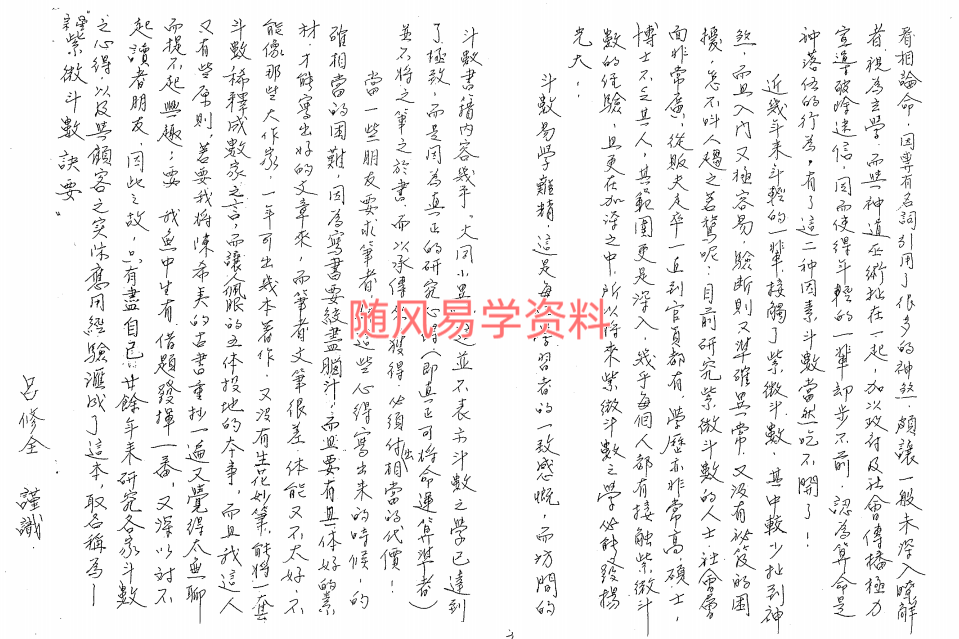 看相論命，因專有名詞引用了很多的神煞，頗讓一般未深入瞭解
者，視為玄學。而與神道巫術扯在一起，加以政府及社會傳播極力
宣導破除迷信，因而使得年輕的一輩却步不前，認為算命是
神落伍的行為，有了這二种因素，斗數當然吃不開了！
近幾年来年輕的一輩，接觸了紫微斗數，其中較少扯到神
煞，而且入門又極容易，驗断則又準確異常，又没有祕笈的困
擾，怎不叫人趨之若鶩呢；目前研究紫微斗數的人士，社會層
面非常廣，從販夫走卒一直到官員都有，學歷亦非常高，碩士，
博士不乏其人，其範圍更是深入，幾乎每個人都有接触紫微斗
數的经驗，且更在加深之中，所以将来紫微斗數之學必能發揚
光大！
斗數易學難精，這是每學習者的一致感慨，而坊間的
斗數書籍内容幾乎"大同小異"並不表示斗數之學已達到
了極致，而是因為真正的研究心得（即真正可将命運算準者）
並不将之筆之於書，而以承傳獲得，必须付出相當的代價！
當一些朋友要求筆者這些心得寫出来的時候，的
確相當的困難，因為寫書要絞盡腦汁，而且要有具体好的素
材，才能寫出好的文章来，而筆者文筆很差，体能又不太好，不
能像那些大作家，一年可出幾本著作，又没有生花妙筆，能将一套
斗數稀釋成數家之言，而讓人佩服的五体投地的本事，而且我這人
又有些原則，若要我将陳希夷的古書重抄一遍又覺得太無聊
而提不起興趣；要我無中生有，借題發揮一番，又深以对不
起讀者朋友，因此之故，只有盡自己廿餘年来研究各家斗數
之心得以及與顧客之实際應用經驗滙成了這本，取名稱為—
"紫微斗數訣要"
呂修全 謹識.
随风易学资料